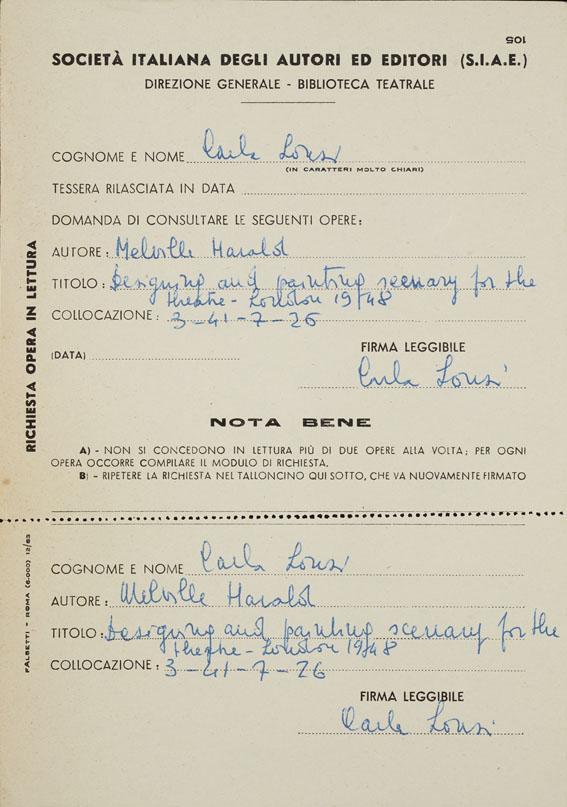 105
SOCIETÀ ITALIANA DEGLI AUTORI ED EDITORI (S.I.A.E.)
DIREZIONE GENERALE - BIBLIOTECA TEATRALE
COGNOME E NOME Carla Lonzi
(IN CARATTERI MOLTO CHIARI)
TESSERA RILASCIATA IN DATA
DOMANDA DI CONSULTARE LE SEGUENTI OPERE:
AUTORE: Melville Harald
TITOLO: Designing and painting scenary for the
theatre - London 1948
COLLOCAZIONE: 3-41-7-26
(DATA)
FIRMA LEGGIBILE
Carla Lonzi
RICHIESTA OPERA IN LETTURA
NOTA BENE
A) - NON SI CONCEDONO IN LETTURA PIÙ DI DUE OPERE ALLA VOLTA; PER OGNI
OPERA OCCORRE COMPILARE IL MODULO DI RICHIESTA.
B) - RIPETERE LA RICHIESTA NEL TALLONCINO QUI SOTTO, CHE VA NUOVAMENTE FIRMATO
COGNOME E NOME Carla Lonzi
AUTORE: Melville Harald
TITOLO: Designing and painting scenary for the
theatre - London 1948
COLLOCAZIONE: 3-41-7-26
FIRMA LEGGIBILE
Carla Lonzi
FALSETTI - ROMA (6-000) 12/63